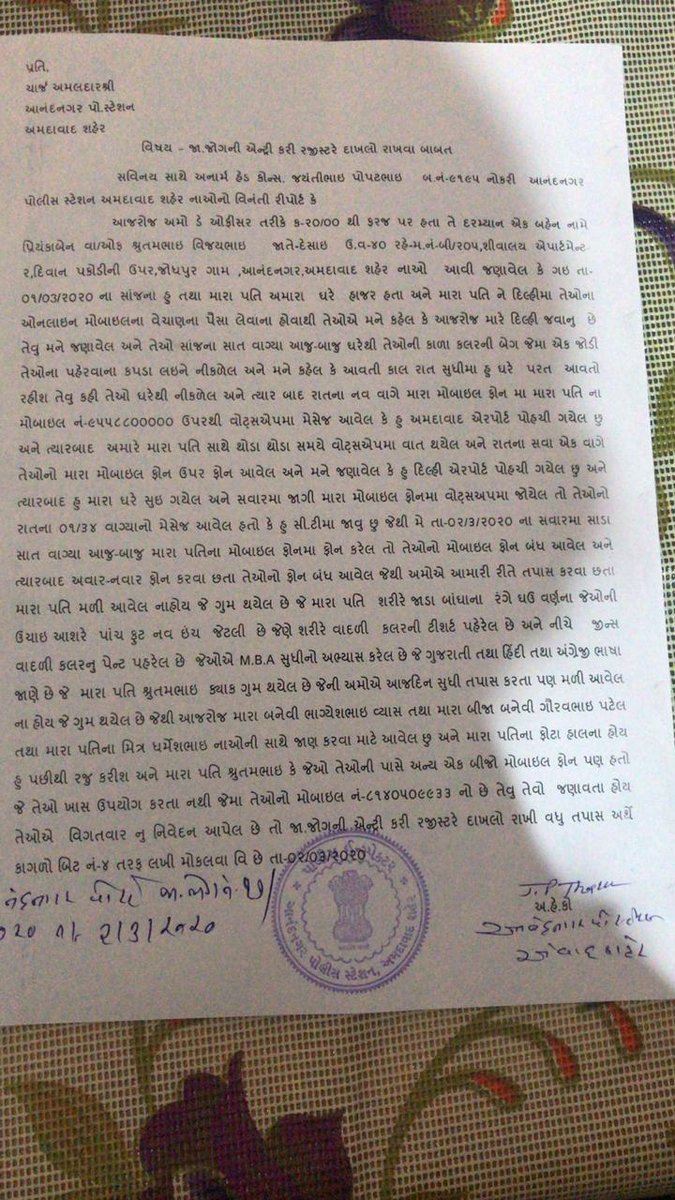 પ્રતિ,
ચાર્જ અમલદારશ્રી
આનંદનગર પો.સ્ટેશન
અમદાવાદ શહેર
વિષય – જા.જોગની એન્ટ્રી કરી રજીસ્ટરે દાખલો રાખવા બાબત
સવિનય સાથે અનાર્મ હેડ કોન્સ. જયંતીભાઇ પોપટભાઇ બ.નં-૯૧૯૫ નોકરી આનંદનગર
પોલીસ સ્ટેશન અમદાવાદ શહેર નાઓનો વિનંતી રીપોર્ટ કે
આજરોજ અમો ડે ઓફીસર તરીકે ક-૨૦/૦૦ થી ફરજ પર હતા તે દરમ્યાન એક બહેન નામે
પ્રિયંકાબેન વા/ઓફ શ્રુતમભાઇ વિજયભાઇ જાતે-દેસાઇ ઉ.વ-૪૦ રહે-મ.નં-બી/૨૦૫,શીવાલય એપાર્ટમેન્ટ-
ર,દિવાન પકોડીની ઉપર,જોધપુર ગામ ,આનંદનગર,અમદાવાદ શહેર નાઓ આવી જણાવેલ કે ગઇ તા-
૦૧/૦૩/૨૦૨૦ ના સાંજના હુ તથા મારા પતિ અમારા ઘરે હાજર હતા અને મારા પતિ ને દિલ્હીમા તેઓના
ઓનલાઇન મોબાઇલના વેચાણના પૈસા લેવાના હોવાથી તેઓએ મને કહેલ કે આજરોજ મારે દિલ્હી જવાનુ છે
તેવુ મને જણાવેલ અને તેઓ સાંજના સાત વાગ્યા આજુ-બાજુ ઘરેથી તેઓની કાળા કલરની બેગ જેમા એક જોડી
તેઓના પહેરવાના કપડા લઇને નીકળેલ અને મને કહેલ કે આવતી કાલ રાત સુધીમા હુ ઘરે પરત આવતો
રહીશ તેવુ કહી તેઓ ઘરેથી નીકળેલ અને ત્યાર બાદ રાતના નવ વાગે મારા મોબાઇલ ફોન મા મારા પતિ ના
મોબાઇલ નં-૯૫૫૮૮૦૦૦૦૦ ઉપરથી વોટ્સએપમા મેસેજ આવેલ કે હુ અમદાવાદ એરપોર્ટ પોહચી ગયેલ છુ
અને ત્યારબાદ અમારે મારા પતિ સાથે થોડા થોડા સમયે વોટ્સએપમા વાત થયેલ અને રાતના સવા એક વાગે
તેઓનો મારા મોબાઇલ ફોન ઉપર ફોન આવેલ અને મને જણાવેલ કે હુ દિલ્હી એરપોર્ટ પોહચી ગયેલ છુ અને
ત્યારબાદ હુ મારા ઘરે સુઇ ગયેલ અને સવારમા જાગી મારા મોબાઇલ ફોનમા વોટ્સઅપમા જોયેલ તો તેઓનો
રાતના ૦૧/૩૪ વાગ્યાનો મેસેજ આવેલ હતો કે હુ સી.ટીમા જાવુ છુ જેથી મે તા-૦૨/૩/૨૦૨૦ ના સવારમા સાડા
સાત વાગ્યા આજુ-બાજુ મારા પતિના મોબાઇલ ફોનમા ફોન કરેલ તો તેઓનો મોબાઇલ ફોન બંધ આવેલ અને
ત્યારબાદ અવાર-નવાર ફોન કરવા છતા તેઓનો ફોન બંધ આવેલ જેથી અમોએ આમારી રીતે તપાસ કરવા છતા
મારા પતિ મળી આવેલ નાહોય જે ગુમ થયેલ છે જે મારા પતિ શરીરે જાડા બાંધાના રંગે ઘઉ વર્ણના જેઓની
ઉચાઇ આશરે પાંચ ફુટ નવ ઇંચ જેટલી છે જેણે શરીરે વાદળી કલરની ટીશર્ટ પહેરેલ છે અને નીચે જીન્સ
વાદળી કલરનુ પેન્ટ પહરેલ છે જેઓએ M.B.A સુધીનો અભ્યાસ કરેલ છે જે ગુજરાતી તથા હિંદી તથા અંગ્રેજી ભાષા
જાણે છે જે મારા પતિ શ્રુતમભાઇ ક્યાક ગુમ થયેલ છે જેની અમોએ આજદિન સુધી તપાસ કરતા પણ મળી આવેલ
ના હોય જે ગુમ થયેલ છે જેથી આજરોજ મારા બનેવી ભાગ્યેશભાઇ વ્યાસ તથા મારા બીજા બનેવી ગૌરવભાઇ પટેલ
તથા મારા પતિના મિત્ર ધર્મેશભાઇ નાઓની સાથે જાણ કરવા માટે આવેલ છુ અને મારા પતિના ફોટા હાલના હોય
હુ પછીથી રજુ કરીશ અને મારા પતિ શ્રુતમભાઇ કે જેઓ તેઓની પાસે અન્ય એક બીજો મોબાઇલ ફોન પણ હતો
જે તેઓ ખાસ ઉપયોગ કરતા નથી જેમા તેઓનો મોબાઇલ નં-૮૧૪૦૫૦૯૯૩૩ નો છે તેવુ તેવો જણાવતા હોય
તેઓએ વિગતવાર નુ નિવેદન આપેલ છે તો જા.જોગની એન્ટ્રી કરી રજીસ્ટરે દાખલો રાખી વધુ તપાસ અર્થે
કાગળો બિટ નં-૪ તરફ લખી મોકલવા વિ છે તા-૦૨/૦૩/૨૦૨૦
જા.જોગ
૨/૩/૨૦૨૦
અ.હે.કો
આનંદનગર પોલીસ સ્ટેશન, અમદાવાદ શહેર